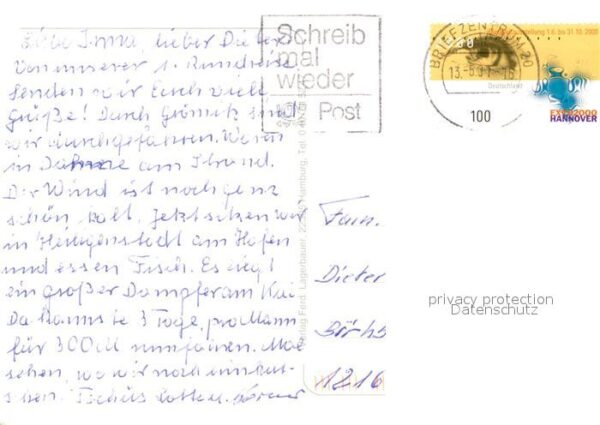 Liebe Irma, lieber Dieter
Von unserer 1. Rundreise
senden wir Euch viele
Grüße! Durch Grömitz sind
wir durchgefahren. Waren
in Dahme am Strand.
Der Wind ist noch ganz
schön kalt. Jetzt sitzen wir
in Heiligenstedt am Hafen
und essen Fisch. Es liegt
ein großer Dampfer am Kai
Da kannste 3 Tage, pro Mann
für 300 M rumfahren. Mal
sehen, wo wir noch
Tschüs
Schreib
mal
wieder
Post
BRIEFZENTRUM 20
Deutschland
100
EXPO2000
HANNOVER
Verlag Ferd. Lagerbauer, Hamburg, Tel.
Fam.
Dieter
1216
privacy protection
Datenschutz